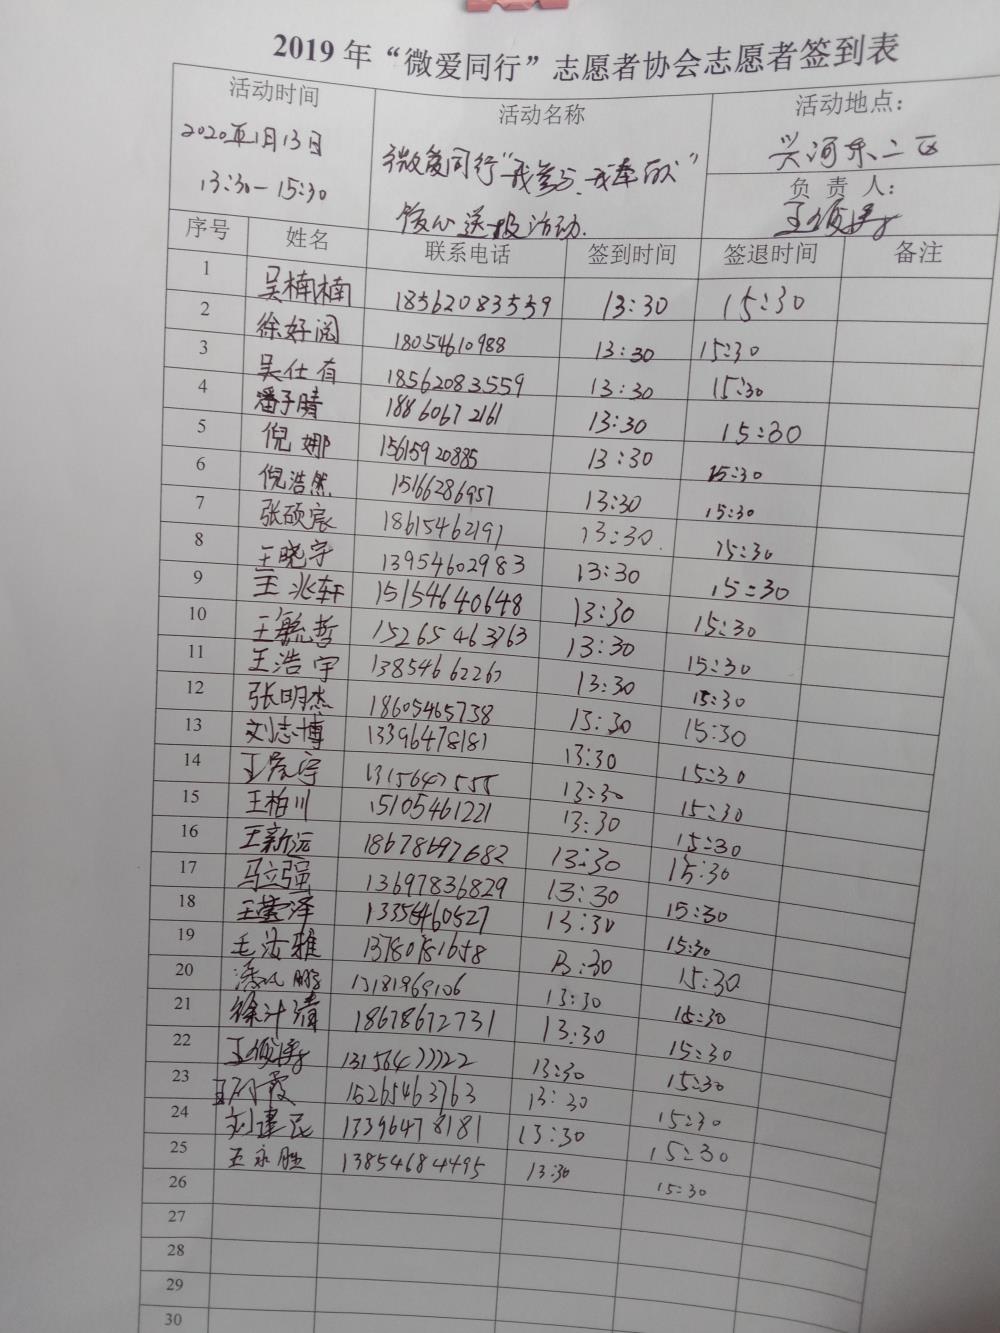 2019年“微爱同行”志愿者协会志愿者签到表
活动时间 活动名称 活动地点：
2020年1月13日 微爱同行“我参与、我奉献” 兴河东二区
13:30-15:30 送报活动. 负责人：
序号 姓名 联系电话 签到时间 签退时间 备注
1 吴楠楠 18562083559 13:30 15:30
2 徐好阅 18054610988 13:30 15:30
3 吴仕有 18562083559 13:30 15:30
4 潘子晴 18860672161 13:30 15:30
5 倪娜 15615920885 13:30 15:30
6 倪浩然 15166286957 13:30 15:30
7 张硕宸 18615462191 13:30 15:30
8 王晓宇 13954602983 13:30 15:30
9 王兆轩 15154640648 13:30 15:30
10 王毓哲 15265463763 13:30 15:30
11 王浩宇 13:30 15:30
12 张明杰 18605465738 13:30 15:30
13 刘志博 13396478181 13:30 15:30
14 王彦宇 13:30 15:30
15 王柏川 15105461221 13:30 15:30
16 王新远 18678697682 13:30 15:30
17 马立强 13697836829 13:30 15:30
18 13356460527 13:30 15:30
19 毛洁雅 13780781658 13:30 15:30
20 13181969106 13:30 15:30
21 徐汁清 18678672731 13:30 15:30
22 13:30 15:30
23 15265463763 13:30 15:30
24 刘建民 13396478181 13:30 15:30
25 王永胜 13854684495 13:30 15:30
26
27
28
29
30